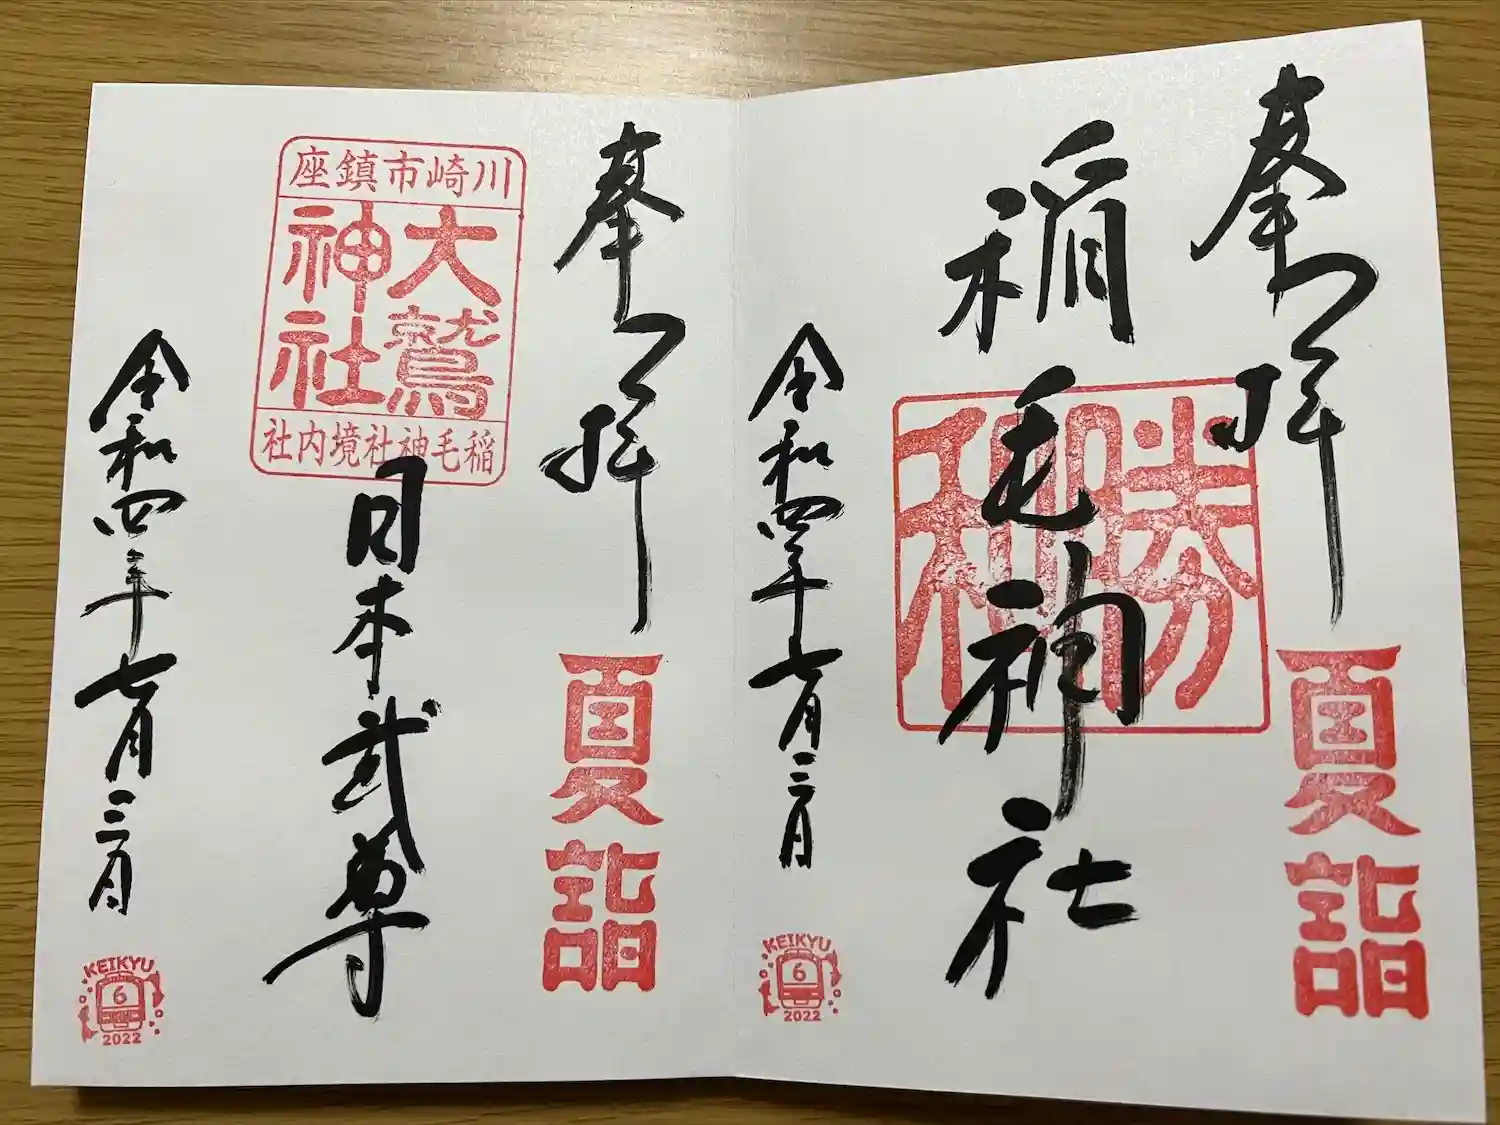 奉拝
夏詣
稲毛神社
勝和
令和四年七月三日
KEIKYU
6
2022
奉拝
夏詣
川崎市鎮座
大鷲
神社
稲毛神社境内社
日本武尊
令和四年七月三日
KEIKYU
6
2022